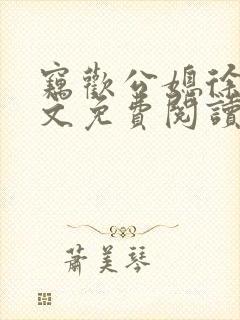 竊歡公媳徐
文免費閱讀
蕭美琴